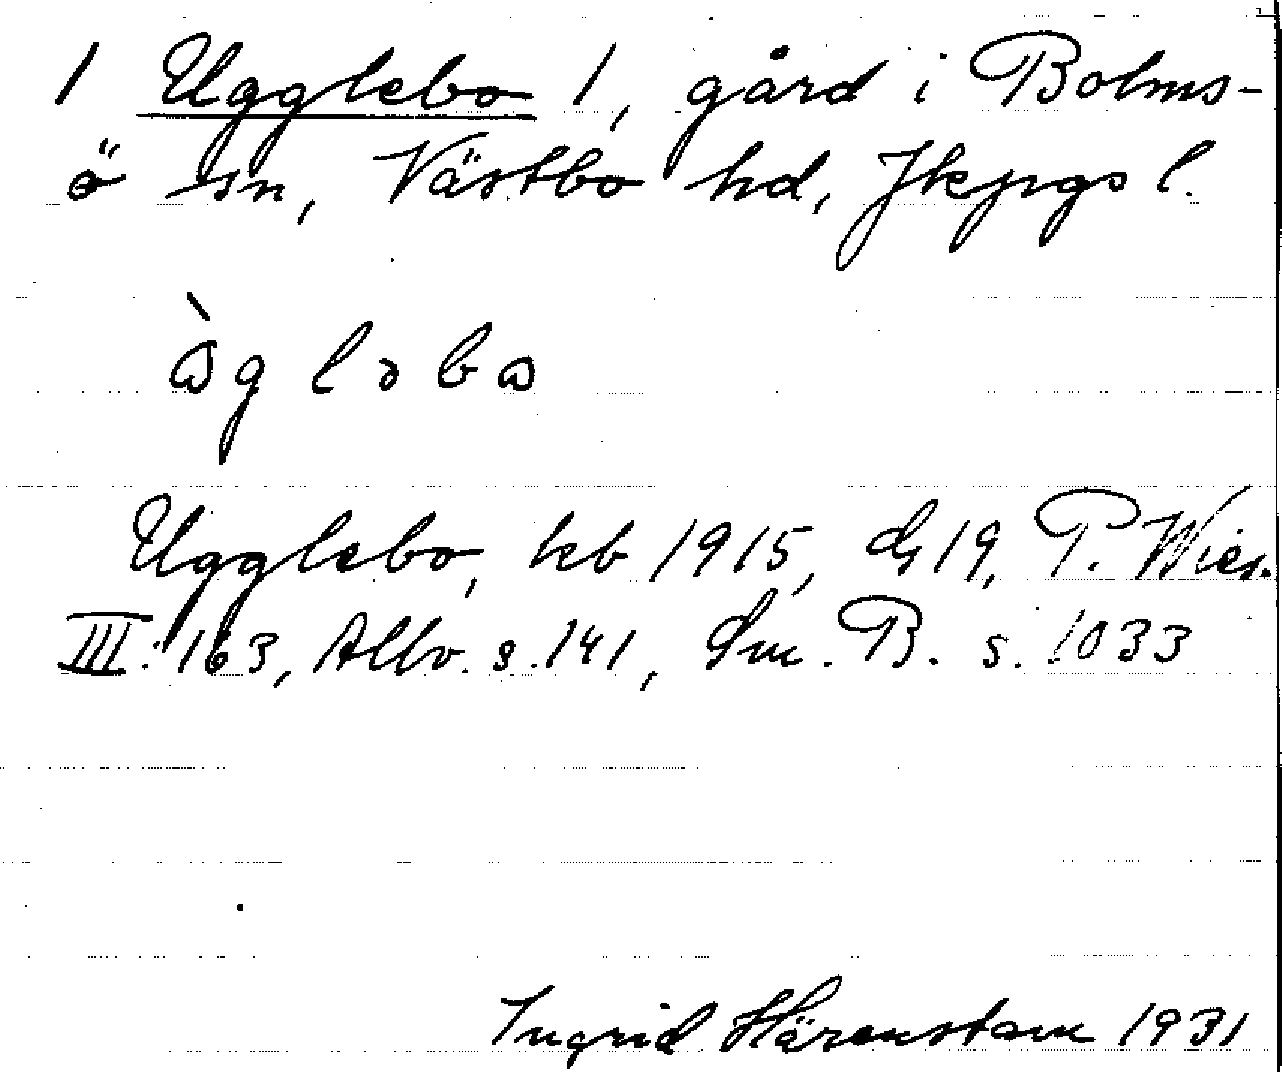 1 Ugglebo 1, gård i Bolms-
ö sn, Västbo hd, Jkpgs l.
ὰgləbω
Ugglebo, kb 1915, G 19, P. Wies.
III: 163, Allv. s. 141, Sm. B. s. 1033
Ingrid Härenstam 1931